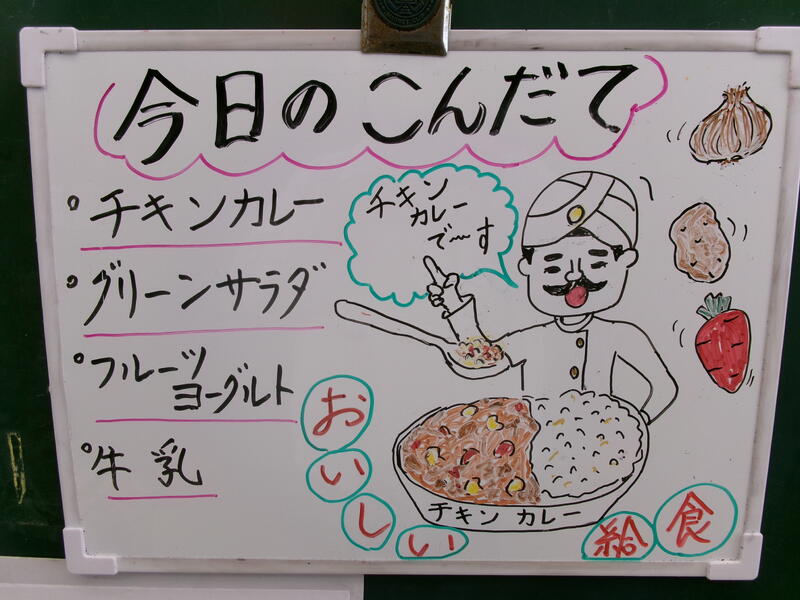 今日のこんだて
チキンカレー
グリーンサラダ
フルーツ
ヨーグルト
牛乳
チキン
カレー
で〜す
チキン カレー
おいしい
給食